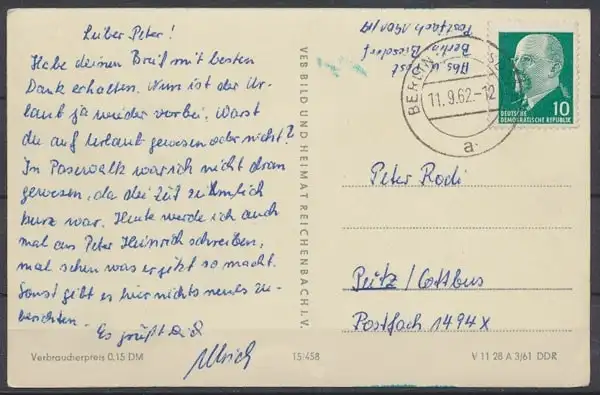 Lieber Peter!
Habe deinen Brief mit besten
Dank erhalten. Nun ist der Ur-
laub ja wieder vorbei. Warst
du auf Urlaub gewesen oder nicht?
In Pasewalk war ich nicht dran
gewesen, da die Zeit ziemlich
kurz war. Heute werde ich auch
mal an Peter Heinrich schreiben,
mal sehen was er jetzt so macht.
Sonst gibt es hier nichts neues zu
berichten.
Es grüßt Dich
Ullrich
Verbraucherpreis 0,15 DM
VEB BILD UND HEIMAT REICHENBACH I. V.
15/458
Abs. u.
Berlin Biesdorf
Postfach
BERLIN
11.9.62.-12
a
10
DEUTSCHE
DEMOKRATISCHE REPUBLIK
Peter Rodi
Peitz/Cottbus
Postfach 1494 X
V 11 28 A 3/61 DDR